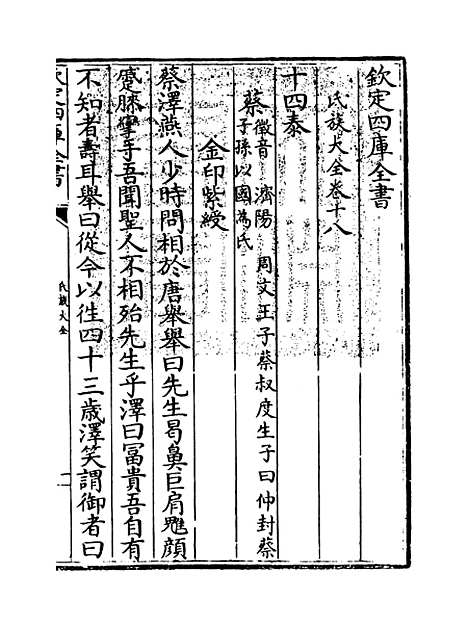 欽定四庫全書
氏族大全卷十八
十四泰
蔡徵音 濟陽 周文王子蔡叔度生子曰仲封蔡
子孫以國為氏
金印紫綬
蔡澤燕人少時問相於唐舉舉曰先生曷鼻巨肩魋顔
蹙膝攣乎吾聞聖人不相殆先生乎澤曰冨貴吾自有
不知者壽耳舉曰從今以往四十三歲澤笑謂御者曰
欽定四庫全書
氏族大全
一